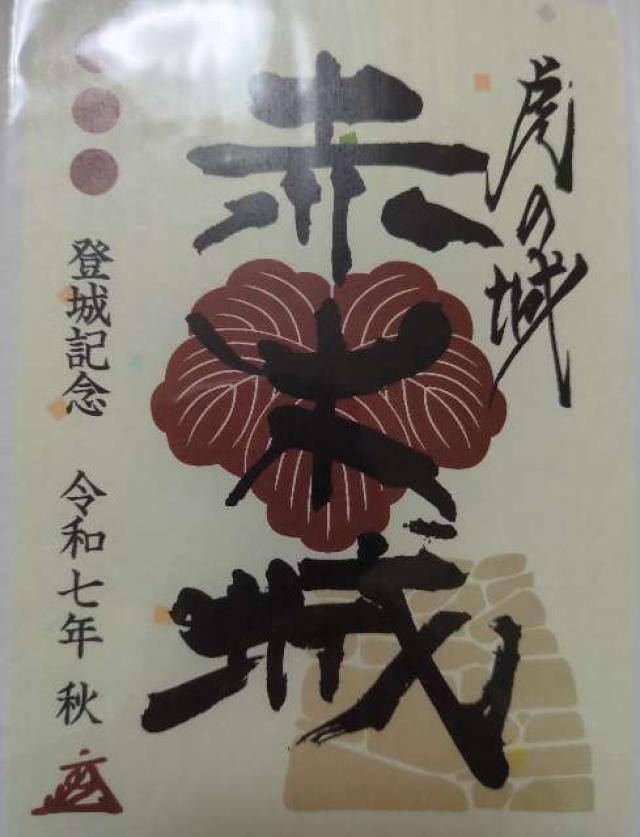 虎の城
赤木城
登城記念 令和七年 秋